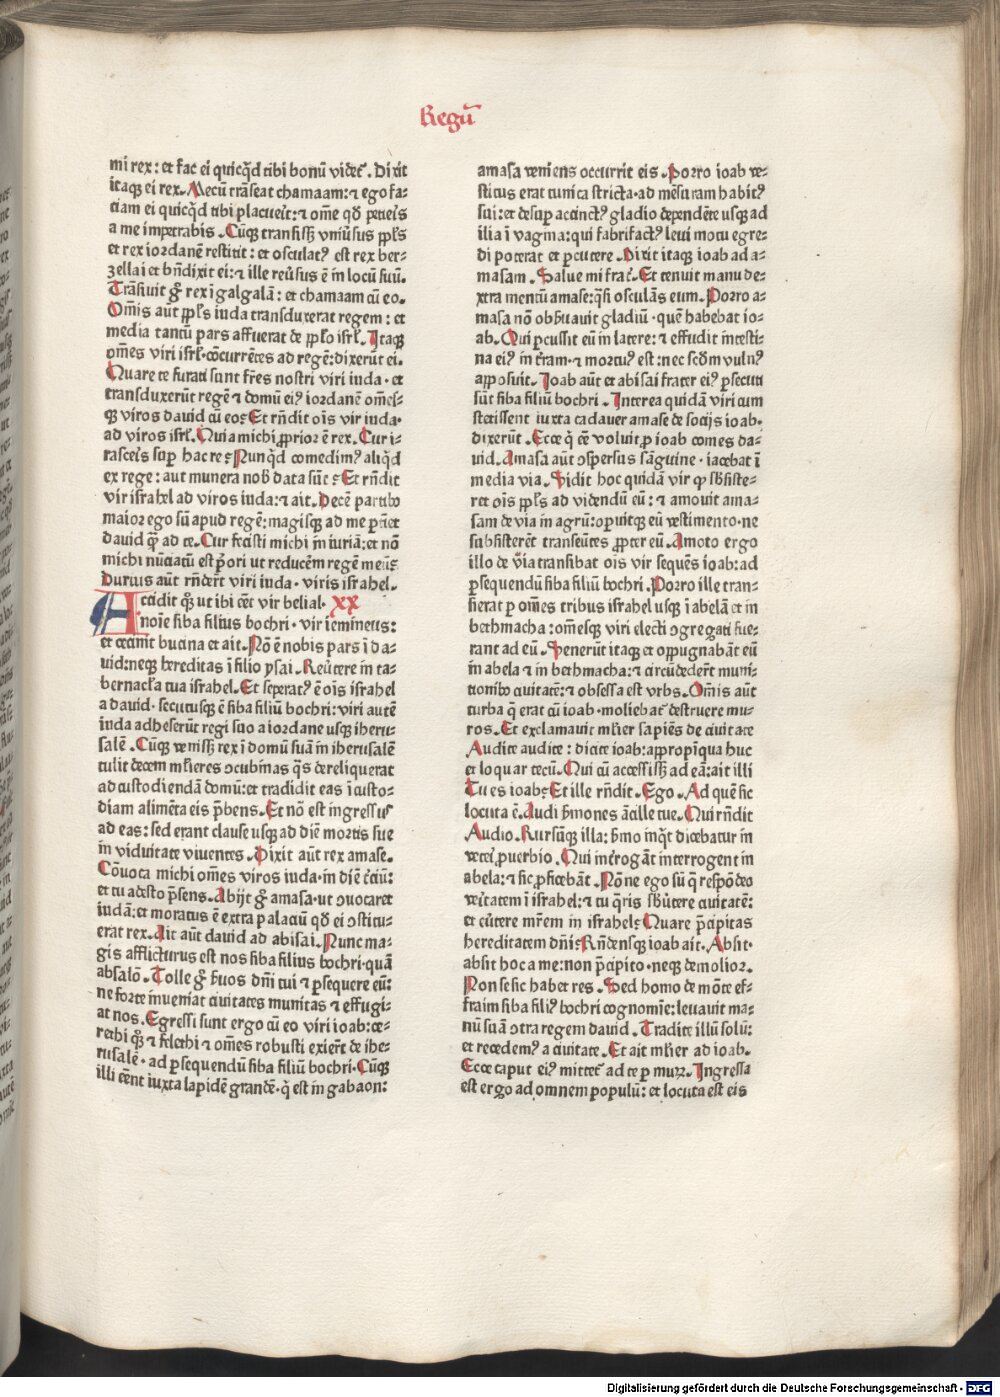 Regū
mi rex: et fac ei quicq̄d tibi bonū videt᷑. Dixit
itaqꝫ ei rex. Mecū trāseat chamaam: ⁊ ego fa⸗
ciam ei quicq̄d tibi placuerit: ⁊ om̄e qd̄ petier̄s
a me impetrabis. Cūqꝫ transissꝫ vniūsus ppl̄s
et rex iordanē restitit: et osculatꝰ est rex ber⸗
zellai et bn̄dixit ei: ⁊ ille reūsus ē in locū suū.
Trāsiuit gͦ rex ī galgalā: et chamaam cū eo.
Om̄is aūt ppl̄s iuda transduxerat regem: et
media tantū pars affuerat de pplo isrl̄. Itaqꝫ
om̄es viri isrl̄ cōcurrētes ad regē: dixerūt ei.
Quare te furati sunt fr̄es nostri viri iuda. et
transduxerūt regē ⁊ domū eiꝰ iordanē om̄es⸗
qꝫ viros dauid cū eo? Et rn̄dit oīs vir iuda.
ad viros isrl̄. Quia michi ꝓprior ē rex. Cur i⸗
rasceris suꝑ hac re? Nunq̄d comedimꝰ aliq̄d
ex rege: aut munera nob̄ data sūt? Et rn̄dit
vir israhel ad viros iuda: ⁊ ait. Decē partibꝰ
maior ego sū apud regē: magisqꝫ ad me ꝑtinet
dauid q̄ꝫ ad te. Cur fecisti michi iniuriā: et nō
michi nūciatū est p̄ori ut reducerem regē meū?
Durius aūt rn̄derūt viri iuda. viris israhel.
Accidit qͦꝫ ut ibi eēt vir belial. XX
noīe siba filius bochri. vir iemineus:
et cecinit bucina et ait. Nō ē nobis pars ī da⸗
uid: neqꝫ hereditas ī filio ysai. Reūtere in ta⸗
bernacl̄a tua israhel. Et seperatꝰ ē oīs israhel
a dauid. secutusqꝫ ē siba filiū bochri: viri autē
iuda adheserūt regi suo a iordane usqꝫ iheru⸗
salē. Cūqꝫ venissꝫ rex ī domū suā in iherusalē
tulit decem ml̄ieres ↄcubinas q̄s dereliquerat
ad custodiendā domū: et tradidit eas ī custo⸗
diam alimēta eis p̄bens. Et nō est ingressus
ad eas: sed erant clause usqꝫ ad diē mortis sue
in viduitate viuentes. Dixit aūt rex amase.
Cōuoca michi om̄es viros iuda. in diē tͨiū:
et tu adesto p̄sens. Abijt gͦ amasa. ut ↄuocaret
iudā: et moratus ē extra palaciū qd̄ ei ↄstitu⸗
erat rex. Ait aūt dauid ad abisai. Nunc ma⸗
gis afflicturus est nos siba filius bochri. quā
absalō. Tolle gͦ ẜuos dn̄i tui ⁊ ꝑsequere eū:
ne forte inueniat ciuitates munitas ⁊ effugi⸗
at nos. Egressi sunt ergo cū eo viri ioab: ce⸗
rethi qͦꝫ ⁊ felethi ⁊ om̄es robusti exierūt de ihe⸗
rusalē. ad ꝑsequendū siba filiū bochri. Cūqꝫ
illi eēnt iuxta lapidē grandē. q̄ est in gabaon:
amasa veniens occurrit eis. Porro ioab ve⸗
stitus erat tunica stricta. ad mēsuram habitꝰ
sui: et desuꝑ accinctꝰ gladio dependēte usqꝫ ad
ilia ī vagina: qui fabrifactꝰ leui motu egre⸗
di poterat et ꝑcutere. Dixit itaqꝫ ioab ad a⸗
masam. Salue mi frat᷑. Et tenuit manu de⸗
xtra mentū amase: q̄si osculās eum. Porro a⸗
masa nō obẜuauit gladiū. quē habebat io⸗
ab. Qui ꝑcussit eū in latere: ⁊ effudit intesti⸗
na eiꝰ in t̄ram. ⁊ mortuꝰ est: nec scd̄m vulnꝰ
apposuit. Ioab aūt et abisai frater eiꝰ ꝑsecuti
sūt siba filiū bochri. Interea quidā viri cum
stetissent iuxta cadauer amase de socijs ioab.
dixerūt. Ecce q̄ eē voluit ꝓ ioab comes da⸗
uid. Amasa aūt ↄspersus sāguine. iacebat ī
media via. Vidit hoc quidā vir ꝙ sb̄siste⸗
ret oīs ppl̄s ad videndū eū: ⁊ amouit ama⸗
sam de via in agrū: oꝑuitqꝫ eū vestimento. ne
subsisterēt transeūtes ꝓpter eū. Amoto ergo
illo de via transibat oīs vir sequēs ioab: ad
ꝑsequendū siba filiū bochri. Porro ille tran⸗
sierat ꝑ om̄es tribus israhel usqꝫ ī abelā et in
bethmacha: om̄esqꝫ viri electi ↄgregati fue⸗
rant ad eū. Venerūt itaqꝫ et oppugnabāt eū
in abela ⁊ in bethmacha: ⁊ circūdederūt muni⸗
tionibꝰ ciuitatē: ⁊ obsessa est vrbs. Om̄is aūt
turba q̄ erat cū ioab. moliebat᷑ destruere mu⸗
ros. Et exclamauit ml̄ier sapiēs de ciuitate
Audite audite: dicite ioab: appropīqua huc
et loquar tecū. Qui cū accessissꝫ ad eā: ait illi
Tu es ioab? Et ille rn̄dit. Ego. Ad quē sic
locuta ē. Audi ẜmones ācille tue. Qui rn̄dit
Audio. Rursūqꝫ illa: ẜmo inq̄t dicebatur in
vetei ꝓuerbio. Qui int̄rogāt interrogent in
abela: ⁊ sic ꝓficebāt. Nōne ego sū q̄ respōdeo
veritatem ī israhel: ⁊ tu q̄ris sb̄uertere ciuitatē:
et eūtere mr̄em in israhel? Quare p̄cipitas
hereditatem dn̄i? Rn̄densqꝫ ioab ait. Absit.
absit hoc a me: non p̄cipito. neqꝫ demolior.
Non se sic habet res. Sed homo de mōte ef⸗
fraim siba filiꝰ bochri cognomīe: leuauit ma⸗
nū suā ↄtra regem dauid. Tradite illū solū:
et recedemꝰ a ciuitate. Et ait ml̄ier ad ioab.
Ecce caput eiꝰ mittet᷑ ad te ꝑ murꝫ. Ingressa
est ergo ad omnem populū: et locuta est eis
Digitalisierung gefördert durch die Deutsche Forschungsgemeinschaft - DFG